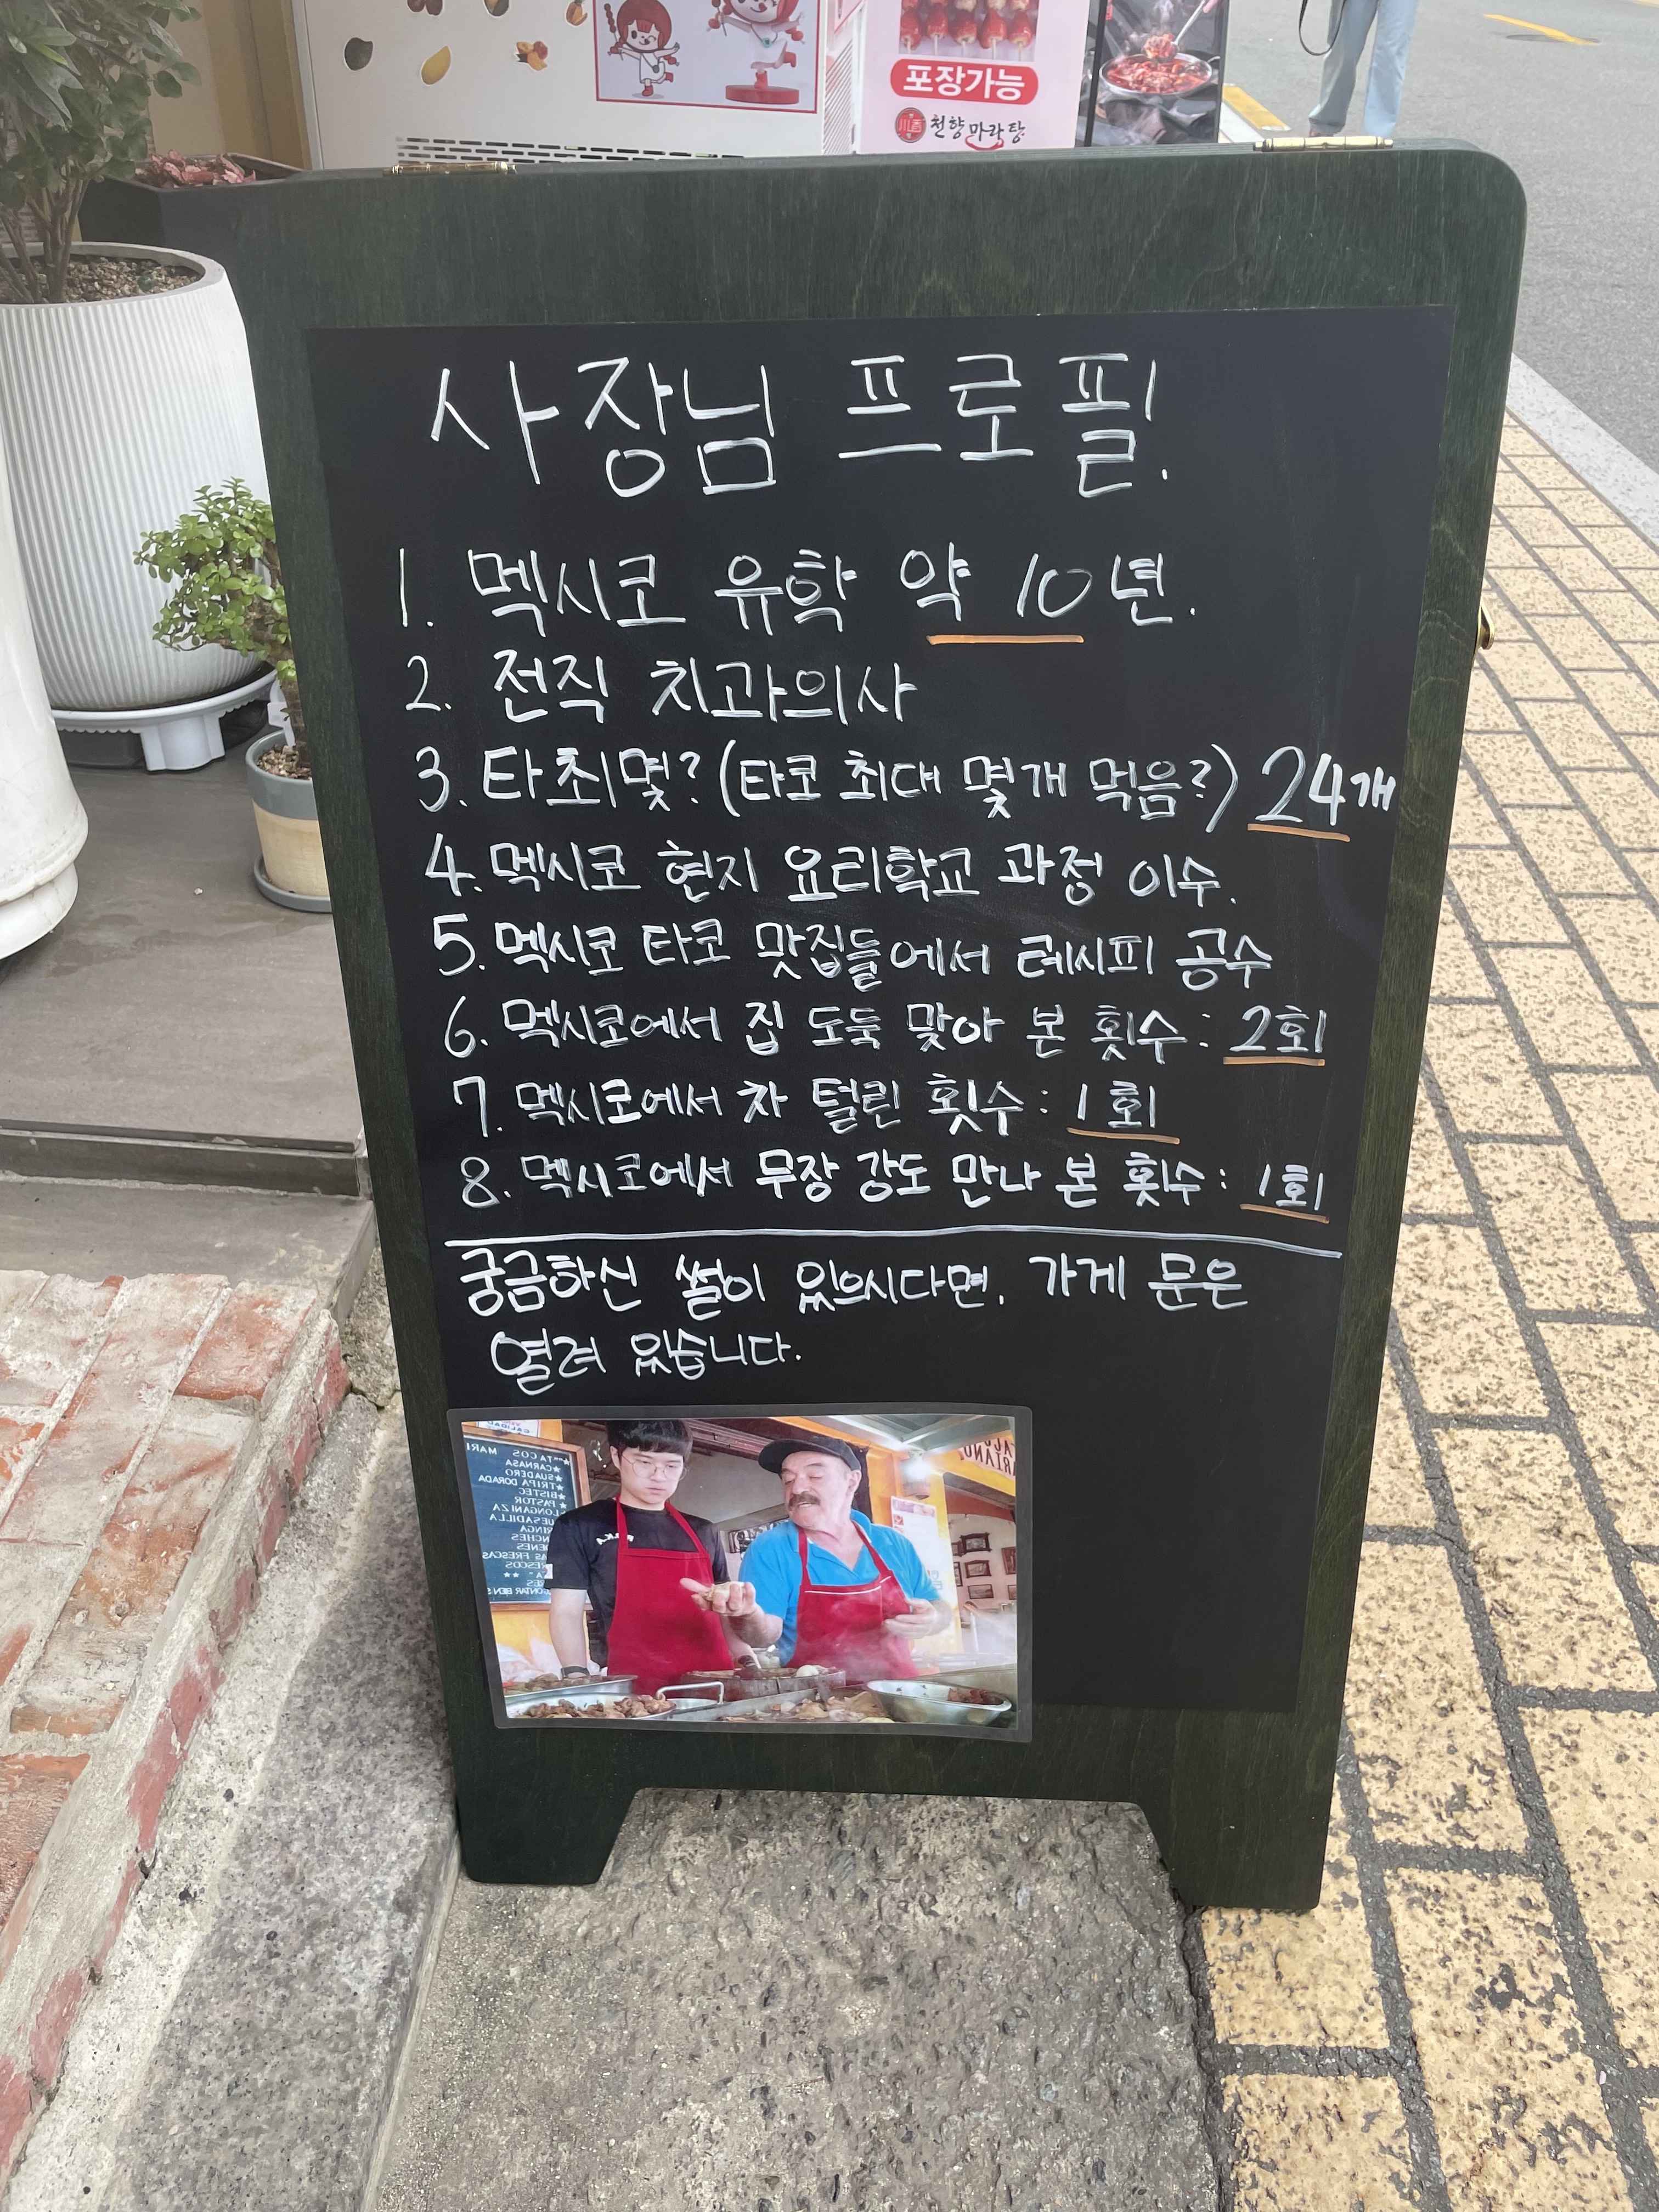 포장가능
천향마라탕
사장님 프로필.
1. 멕시코 유학 약 10년.
2. 전직 치과의사
3. 타최몇? (타코 최대 몇개 먹음?) 24개
4. 멕시코 현지 요리학교 과정 이수.
5. 멕시코 타코 맛집들에서 레시피 공수
6. 멕시코에서 집 도둑 맞아 본 횟수 : 2회
7. 멕시코에서 차 털린 횟수 : 1회
8. 멕시코에서 무장 강도 만나 본 횟수 : 1회
궁금하신 썰이 있으시다면, 가게 문은
열려 있습니다.
CALIDAD
TACOS MARI
CARNASA
SUADERO
TRIPA DORADA
BISTEC
PASTOR
LONGANIZA